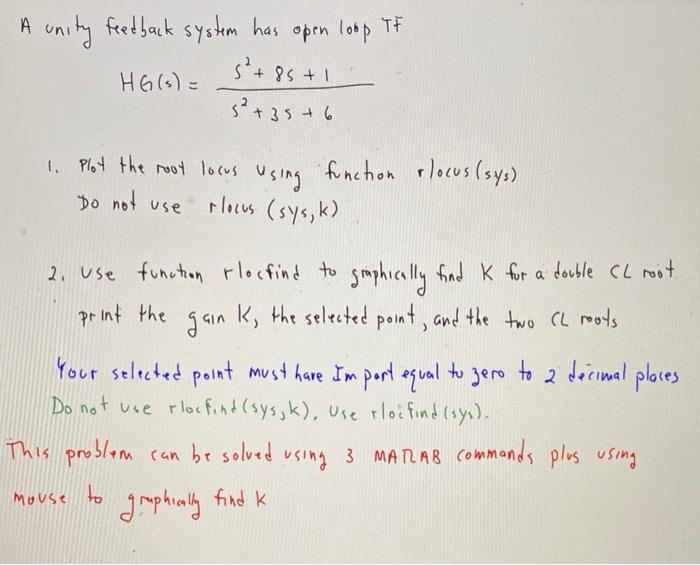 A unity feedback system has open loop TF
HG(s) = s² + 8s + 1
s² + 3s + 6
1. Plot the root locus using function rlocus(sys)
Do not use rlocus (sys,k)
2. Use function rlocfind to graphically find K for a double CL root
print the gain K, the selected point, and the two CL roots
Your selected point must have Im part equal to zero to 2 decimal places
Do not use rlocfind(sys,k). Use rlocfind(sys).
This problem can be solved using 3 MATLAB commands plus using
mouse to graphically find K